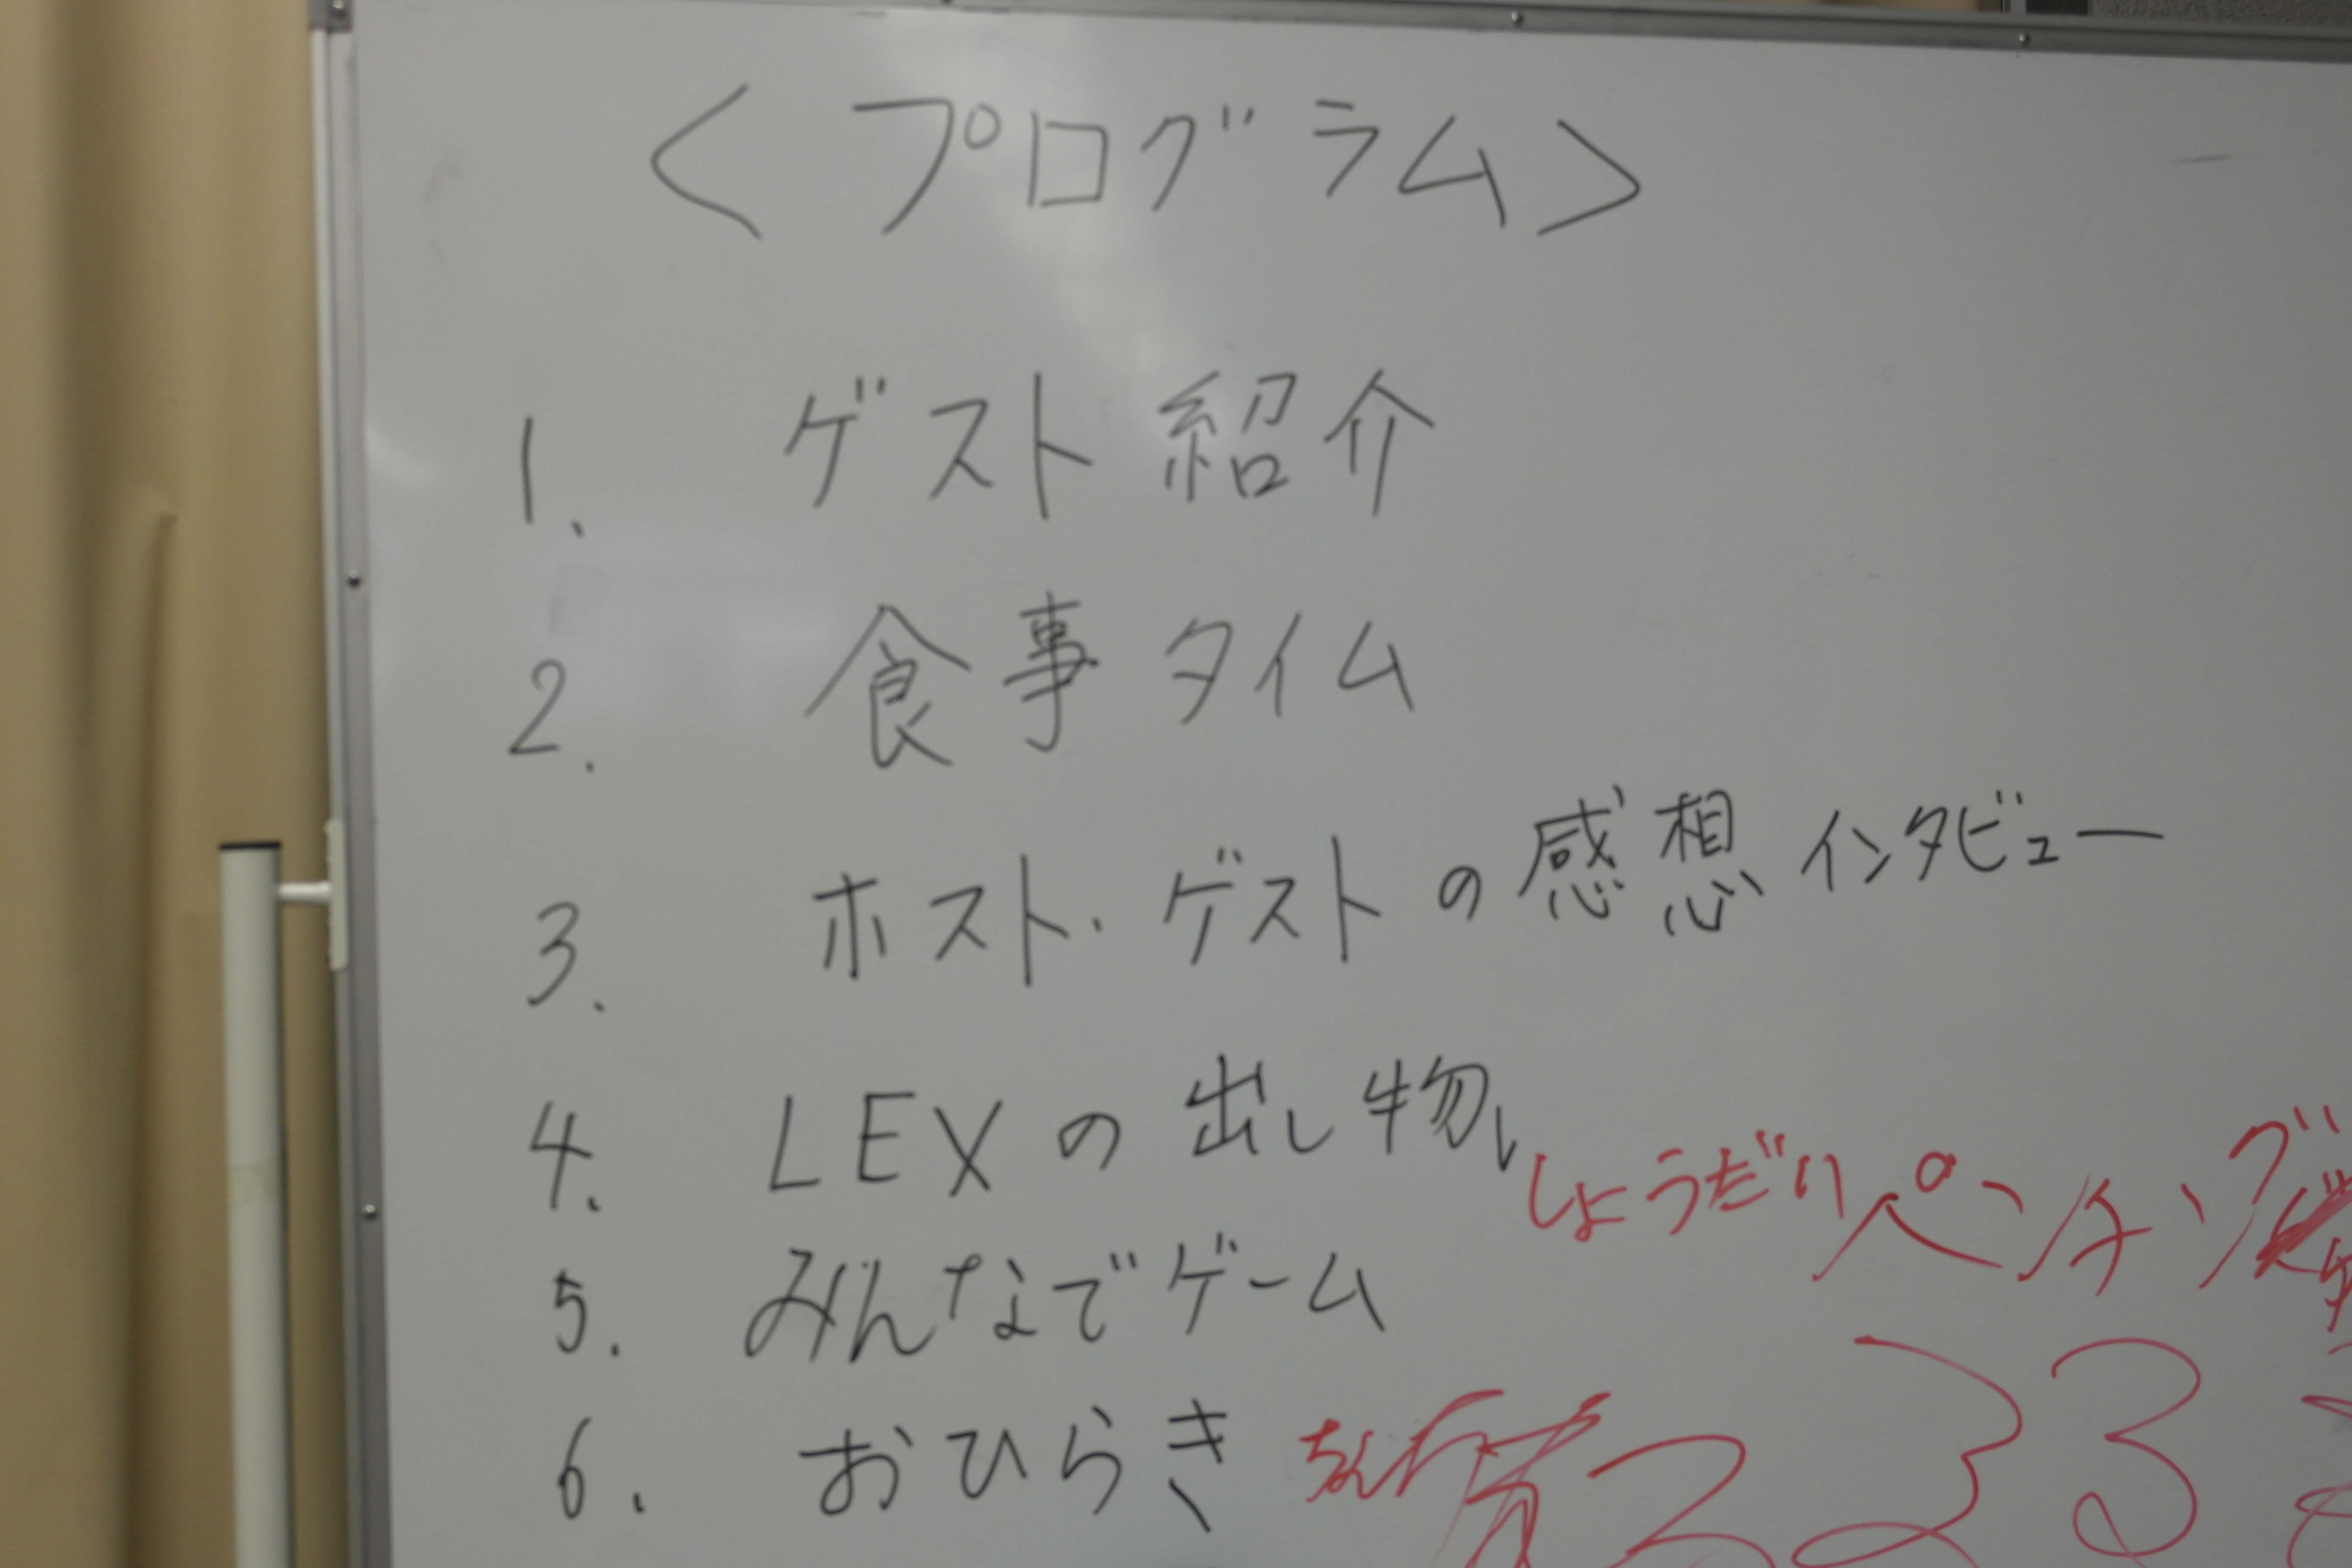 <プログラム>
1. ゲスト紹介
2. 食事タイム
3. ホスト・ゲストの感想インタビュー
4. LEXの出し物
しょうだい
5. みんなでゲーム
6. おひらき